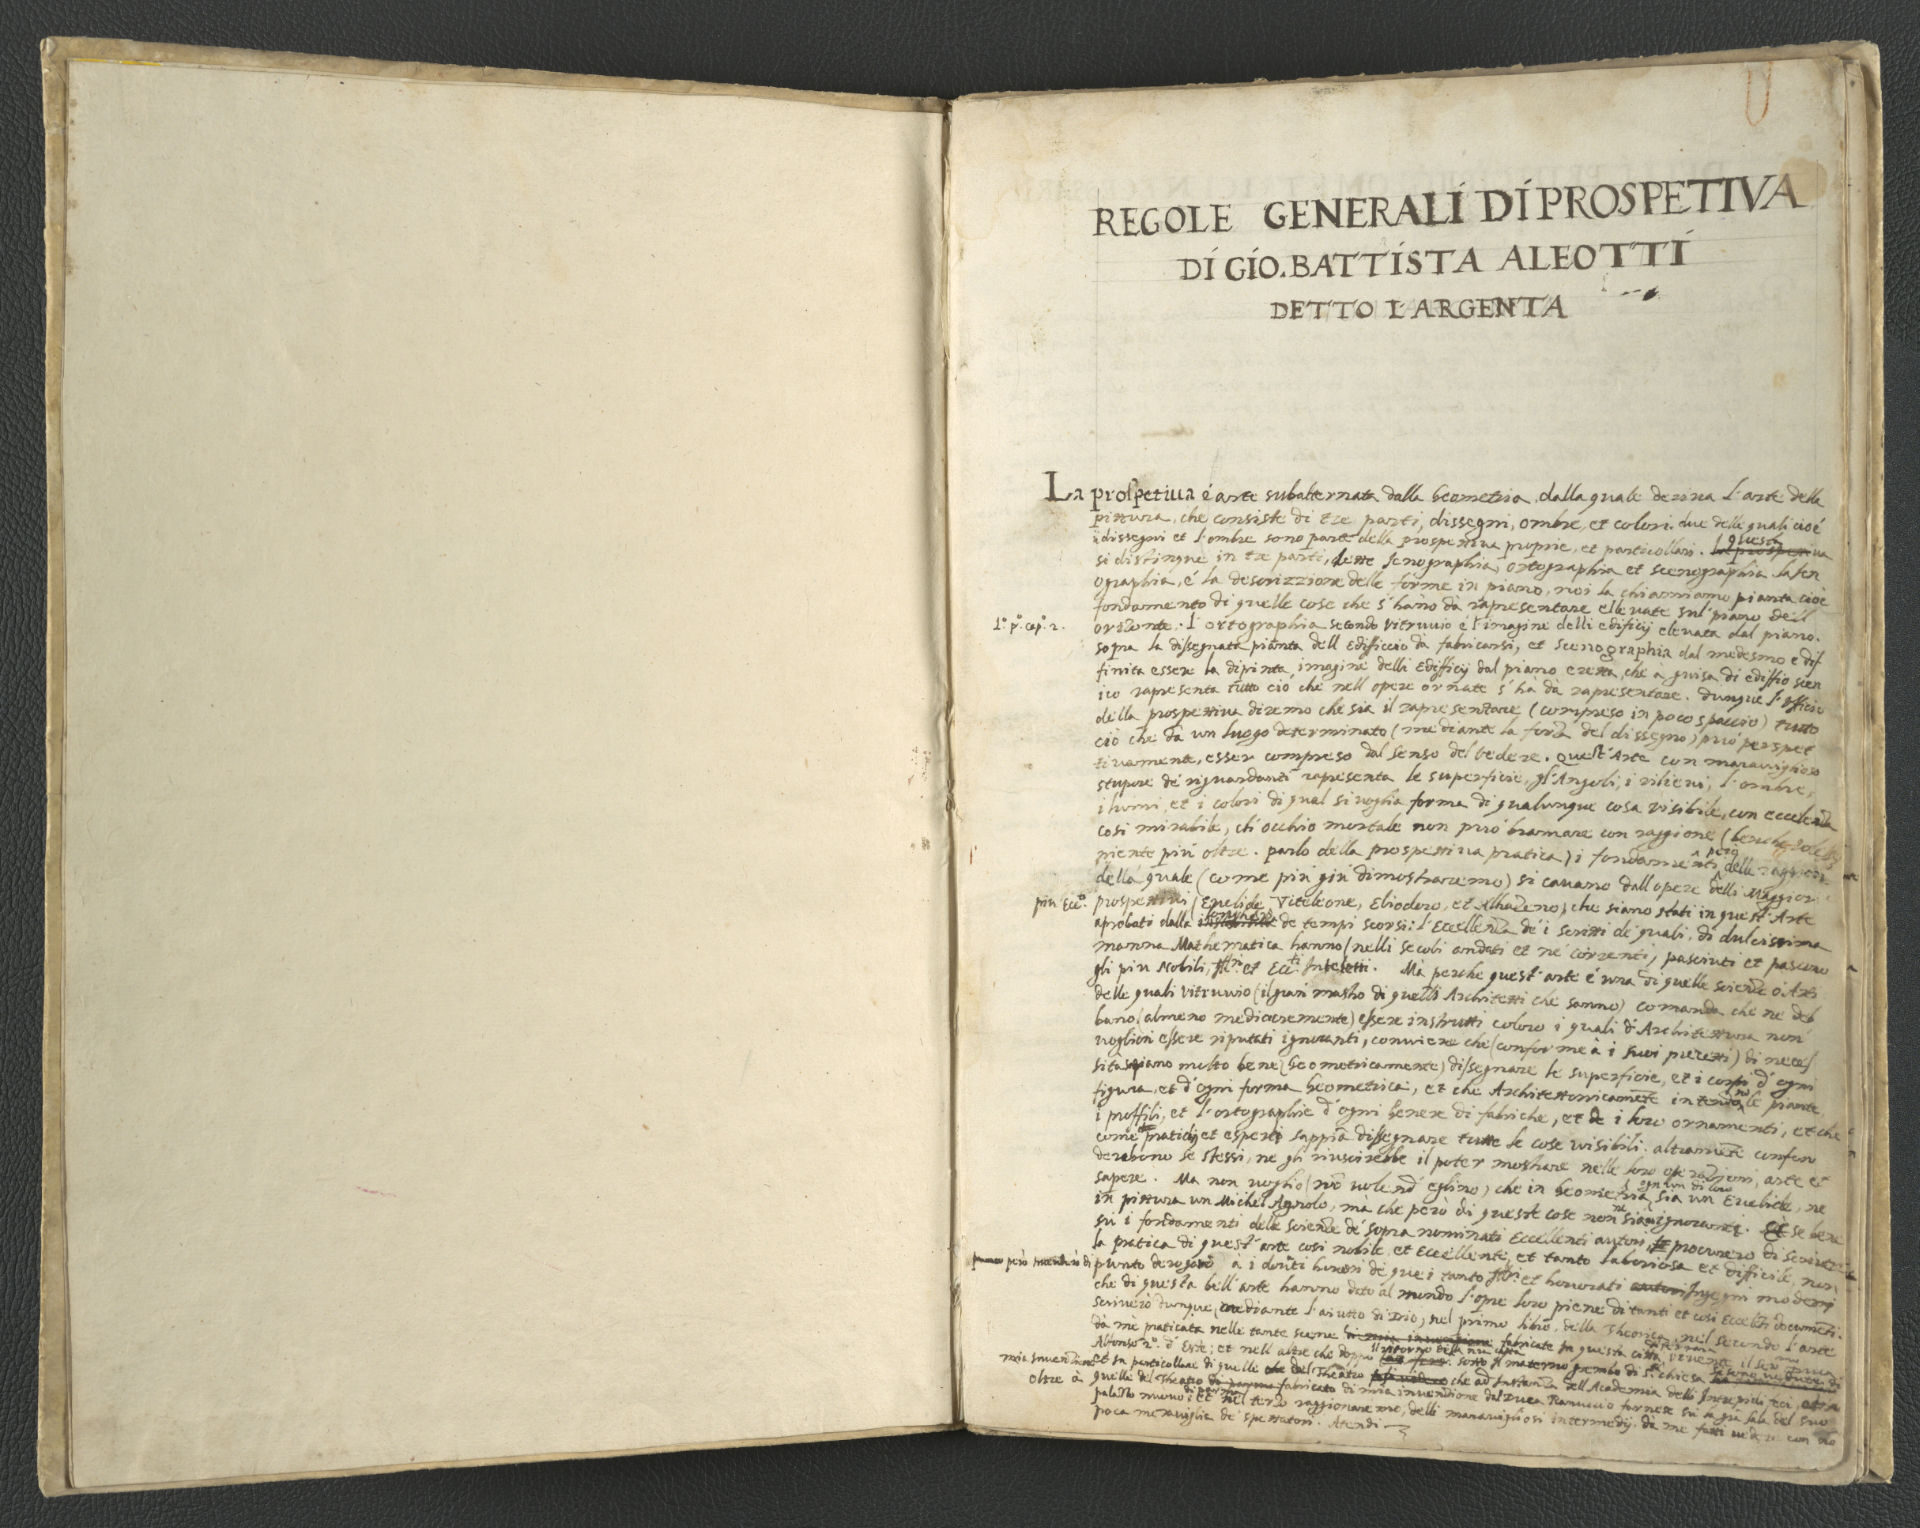 REGOLE GENERALI DI PROSPETTIVA
DI GIO. BATTISTA ALEOTTI
DETTO L'ARGENTA
La prospetiua é arte subalternata dalla Geometria, dalla quale deriua l'arte della
pittura, che consiste di tre parti, dissegni, ombre, et colori. due delle quali cioé
i dissegni et l'ombre sono parte della prospettiua proprie, et particollari. questa
si distingue in tre parti, dette Icnographia, ortographia et scenographia. la Icn
ographia, é la descrizzione delle forme in piano, noi la chiamiamo pianta cioé
fondamento di quelle cose che s'hano dà rapresentare elleuate sul piano dell
1.º p.º cap.º 2.
orizonte. l'ortographia secondo Vitruuio é l'imagine delli edificij eleuata dal piano.
sopra la dissegnata pianta dell Edifficio da fabricarsi, et scenographia dal medesmo e dif
finita essere la dipinta imagine delli Edifficij dal piano eretta, che à guisa di ediffio scen
ico rapresenta tutto ció che nell opere ornate s'há dà rapresentare. Dunque l'officio
della prospettiua diremo che sia il rapresentare (compreso in poco spaccio) tutto
ció che da un luogo determinato (mediante la forza del dissegno) puó perspet
tiuamente, esser compreso dal senso del vedere. Quest'Arte con marauiglioso
stupore de riguardanti rapresenta le superficie, gl'Angoli, i rilieui, l'ombre,
i lumi, et i colori di qual si uoglia forma di qualunque cosa visibile, con eccelenza
cosi mirabile, ch'occhio mortale non puó bramare con raggione
niente piú oltre. parlo della prospettiua pratica) i fondamenti peró delle
della quale (come piu giu dimostraremo) si cauano dall opere delli Maggior
piu Ecc.ti
prospettiui (Euclide, Viteleone, Eliodoro, et Alhazeno) che siano stati in quest'Arte
aprobati dalla de tempi scorsi: l'Eccellenza de i scritti de quali, di dulcissima
manna Mathematica hanno (nelli secoli andati et ne correnti) pasciuti et pascono
gli piu Nobili, Ill.ri et Ecc.ti Inteletti. Má perche quest'arte é una di quelle scienze ó Arti
delle quali Vitruuio (il gran mastro di quelli Architetti che sanno) comanda che ne deb
bano (almeno mediocremente) essere instrutti coloro i quali d'Architettura non
voglion essere riputati ignoranti, conuiene che (conforme à i suoi precetti) di neces
sitá sapiano molto bene (Geometricamente) dissegnare le superficie, et i corpi d'ogni
figura, et d'ogni forma Geometrica, et che Architettonicamente intendano le piante
i proffili, et l'ortographie d'ogni genere di fabriche, et de i loro ornamenti, et che
come pratichi et esperti sappia dissegnare tutte le cose visibili. altramente confon
derebono se stessi, ne gli riuscirebbe il poter mostrare nelle loro operazzioni, arte et
sapere. Ma non uoglio che in Geometria ogn'un di loro sia un Euclide, ne
in pittura un Michel Agnolo, má che peró di queste cose non ne siano ignoranti. se bene
sú i fondamenti delle scienze de sopra nominati Eccellenti autori procurero di scriuere
la pratica di quest'arte cosi nobile, et Eccellente, et tanto laboriosa et difficile, non
peró intendero di
punto derogare á i douti honori de que i tanto Ill.ri et honorati Ingegni moderni
che di questa bell'arte hanno dato al mondo l'opre loro piene di tanti et cosi Eccel.ti documenti.
Scriueró dunque, mediante l'aiutto di Dio, nel primo libro, della Theorica, nel secondo l'arte
dà me praticata nelle tante scene fabricate in questa città
Alfonso 2.º d'Este; et nell altre che doppo sotto il materno grembo di S.ta chiesa
mia inuenzione
et in particollare di quelle del Theatro che ad instanza dell'Academia delli Intrepidi feci,
oltre á
quelle del Theatro di parma fabricato di mia inuenzione dal Duca Ranuccio farnese
palazzo nuouo; et nel terzo raggionaremo, delli marauigliosi intermedij da me fatti uedere con nõ
poca merauiglia de spettatori. Atendi